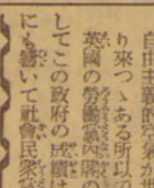 自由主義的空氣が
り來つゝある所以
英國の勞働黨內閣の
してこの政府の成績は
にも響いて社會民衆